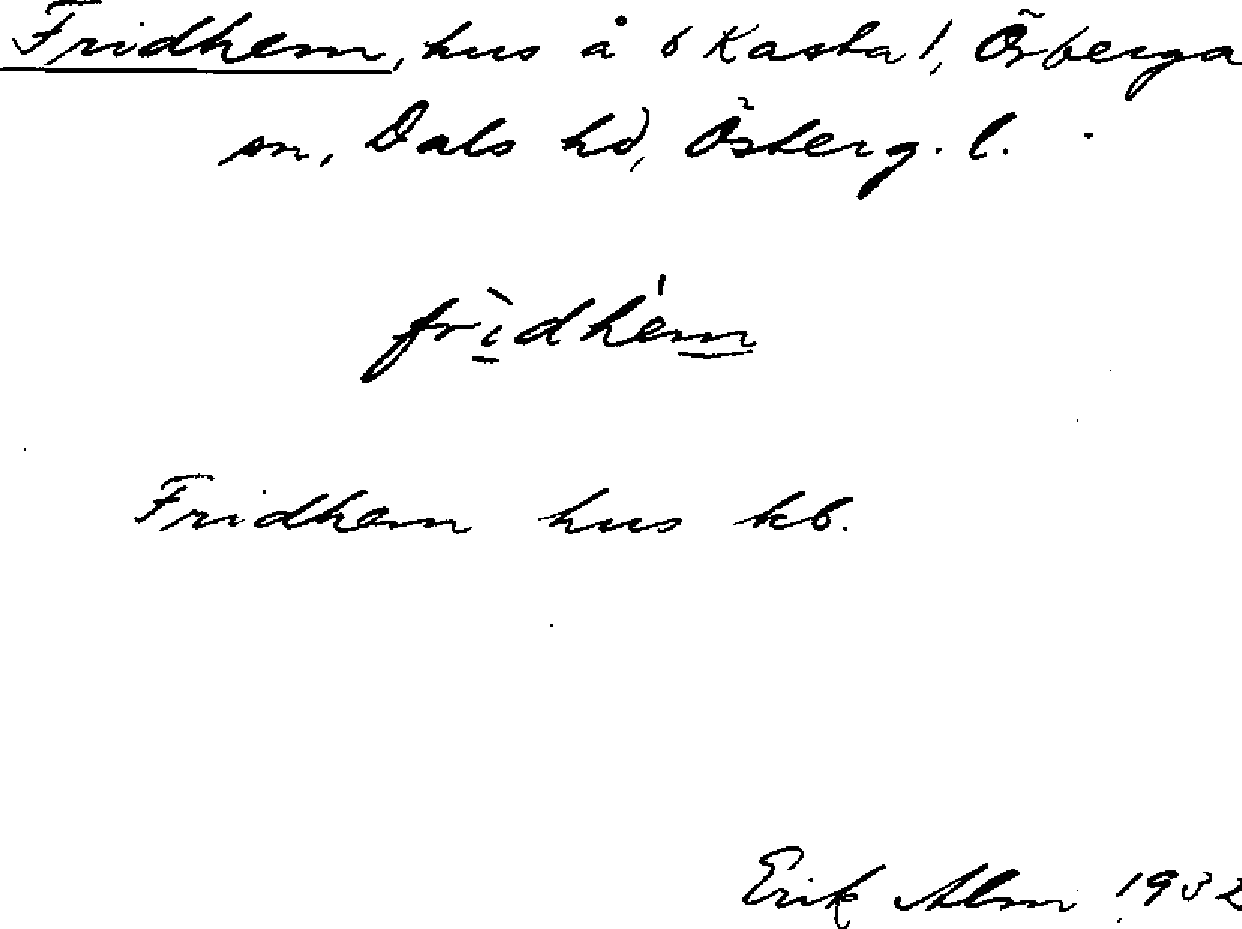 Fridhem, hus å 6 Kasta 1, Örberga
sn, Dals hd, Österg. l.
frìdhém
Fridhem hus kb.
Erik Alm 1932